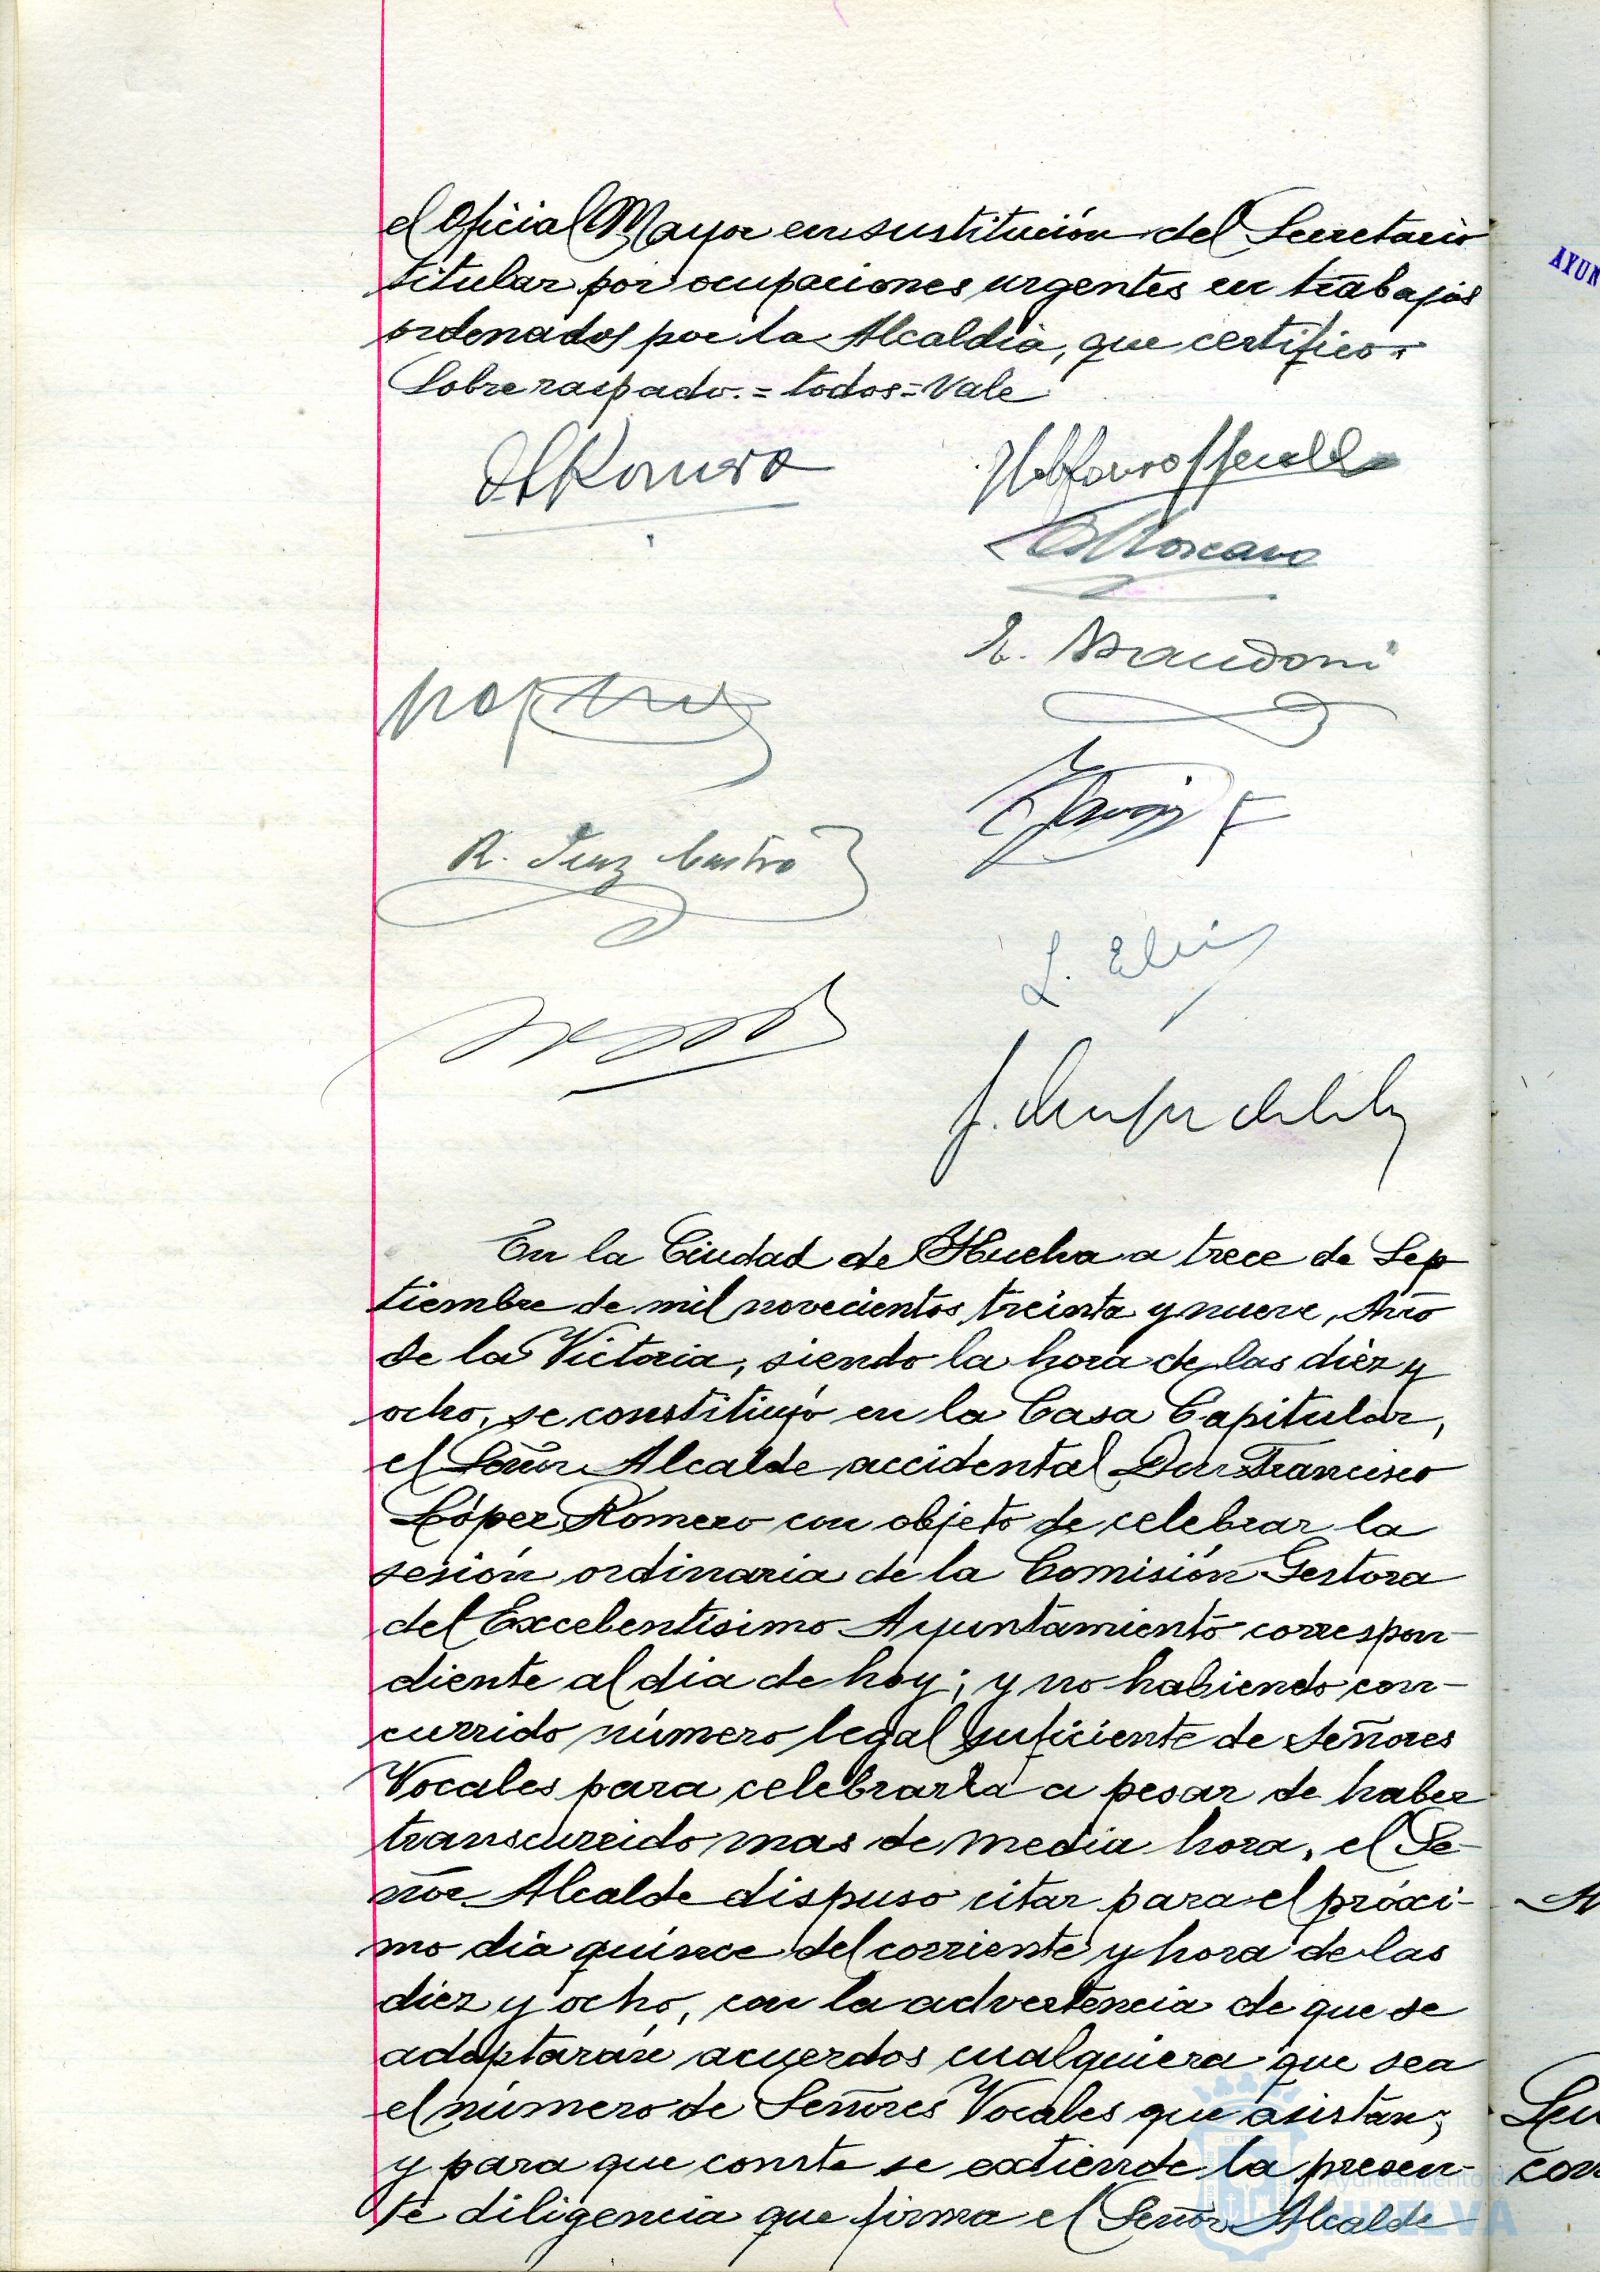 el Oficial Mayor en sustitución del Secretario
titular por ocupaciones urgentes en trabajos
ordenados por la Alcaldia, que certifico.
Sobre raspado.=todos=Vale
Romero
E. Mandoni
R. Diaz Castro
L.
J.
En la Ciudad de Huelva a trece de Sep
tiembre de mil novecientos treinta y nueve, Año
de la Victoria, siendo la hora de las diez y
ocho, se constituyó en la Casa Capitular,
el Señor Alcalde accidental Don Francisco
López Romero con objeto de celebrar la
sesión ordinaria de la Comisión Gestora
del Excelentisimo Ayuntamiento correspon-
diente al dia de hoy; y no habiendo con-
currido número legal suficiente de Señores
Vocales para celebrarla a pesar de haber
transcurrido mas de media hora, el Se-
ñor Alcalde dispuso citar para el próxi-
mo dia quince del corriente y hora de las
diez y ocho, con la advertencia de que se
adoptarán acuerdos cualquiera que sea
el número de Señores Vocales que asistan;
y para que conste se extiende la presen-
te diligencia que firma el Señor Alcalde
AYUN
Ayuntamiento de
HUELVA